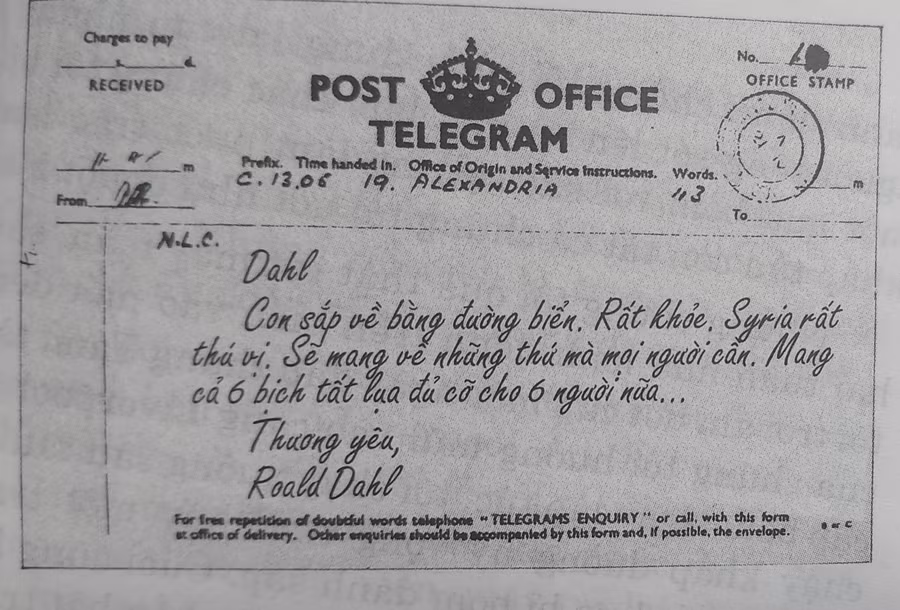 Charges to pay
s. d.
RECEIVED
No.
OFFICE STAMP
POST OFFICE
TELEGRAM
m
Prefix. Time handed in. Office of Origin and Service Instructions. Words.
C. 13.06 19. ALEXANDRIA
113
m
From
To
N.L.C.
Dahl
Con sắp về bằng đường biển. Rất khỏe. Syria rất
thú vị. Sẽ mang về những thú mà mọi người cần. Mang
cả 6 bịch tất lụa đủ cỡ cho 6 người nữa...
Thương yêu,
Roald Dahl
For free repetition of doubtful words telephone "TELEGRAMS ENQUIRY" or call, with this form
at office of delivery. Other enquiries should be accompanied by this form and, if possible, the envelope.
B or C